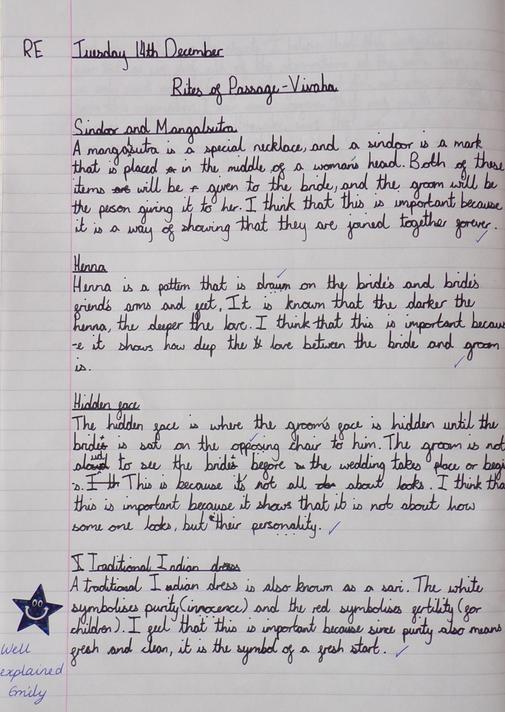 RE Tuesday 14th December
Rites of Passage - Vivaha
Sindoor and Mangalsutra
A mangalsutra is a special necklace, and a sindoor is a mark
that is placed in the middle of a woman's head. Both of these
items will be given to the bride, and the groom will be
the person giving it to her. I think that this is important because
it is a way of showing that they are joined together forever.
Henna
Henna is a pattern that is drawn on the bride's and bride's
friends arms and feet. It is known that the darker the
henna, the deeper the love. I think that this is important becaus
-e it shows how deep the love between the bride and groom
is.
Hidden face
The hidden face is where the groom's face is hidden until the
bride is sat on the opposing chair to him. The groom is not
to see the bride before the wedding takes place or begi
s. This is because it's not all about looks. I think tha
this is important because it shows that it is not about how
some one looks, but their personality.
Traditional Indian dress
A traditional Indian dress is also known as a sari. The white
symbolises purity (innocence) and the red symbolises fertility (for
children). I feel that this is important because since purity also means
fresh and clean, it is the symbol of a fresh start.
Well
explained
Emily